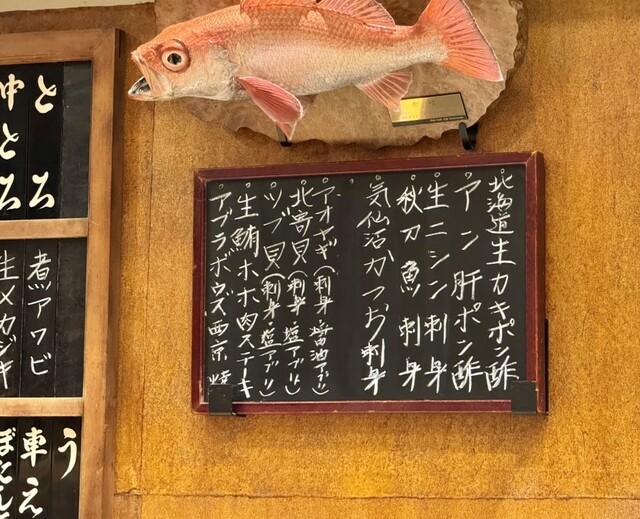 北海道生カキポン酢
アン肝ポン酢
生ニシン刺身
秋刀魚刺身
気仙沼かつお刺身
アオヤギ(刺身 醤油アブリ)
北寄貝(刺身 塩アブリ)
ツブ貝(刺身・塩アブリ)
生鮪ホホ肉ステーキ
アブラボウズ西京焼
とろ
中とろ
煮アワビ
生メカジキ
う
車え
ぼたん